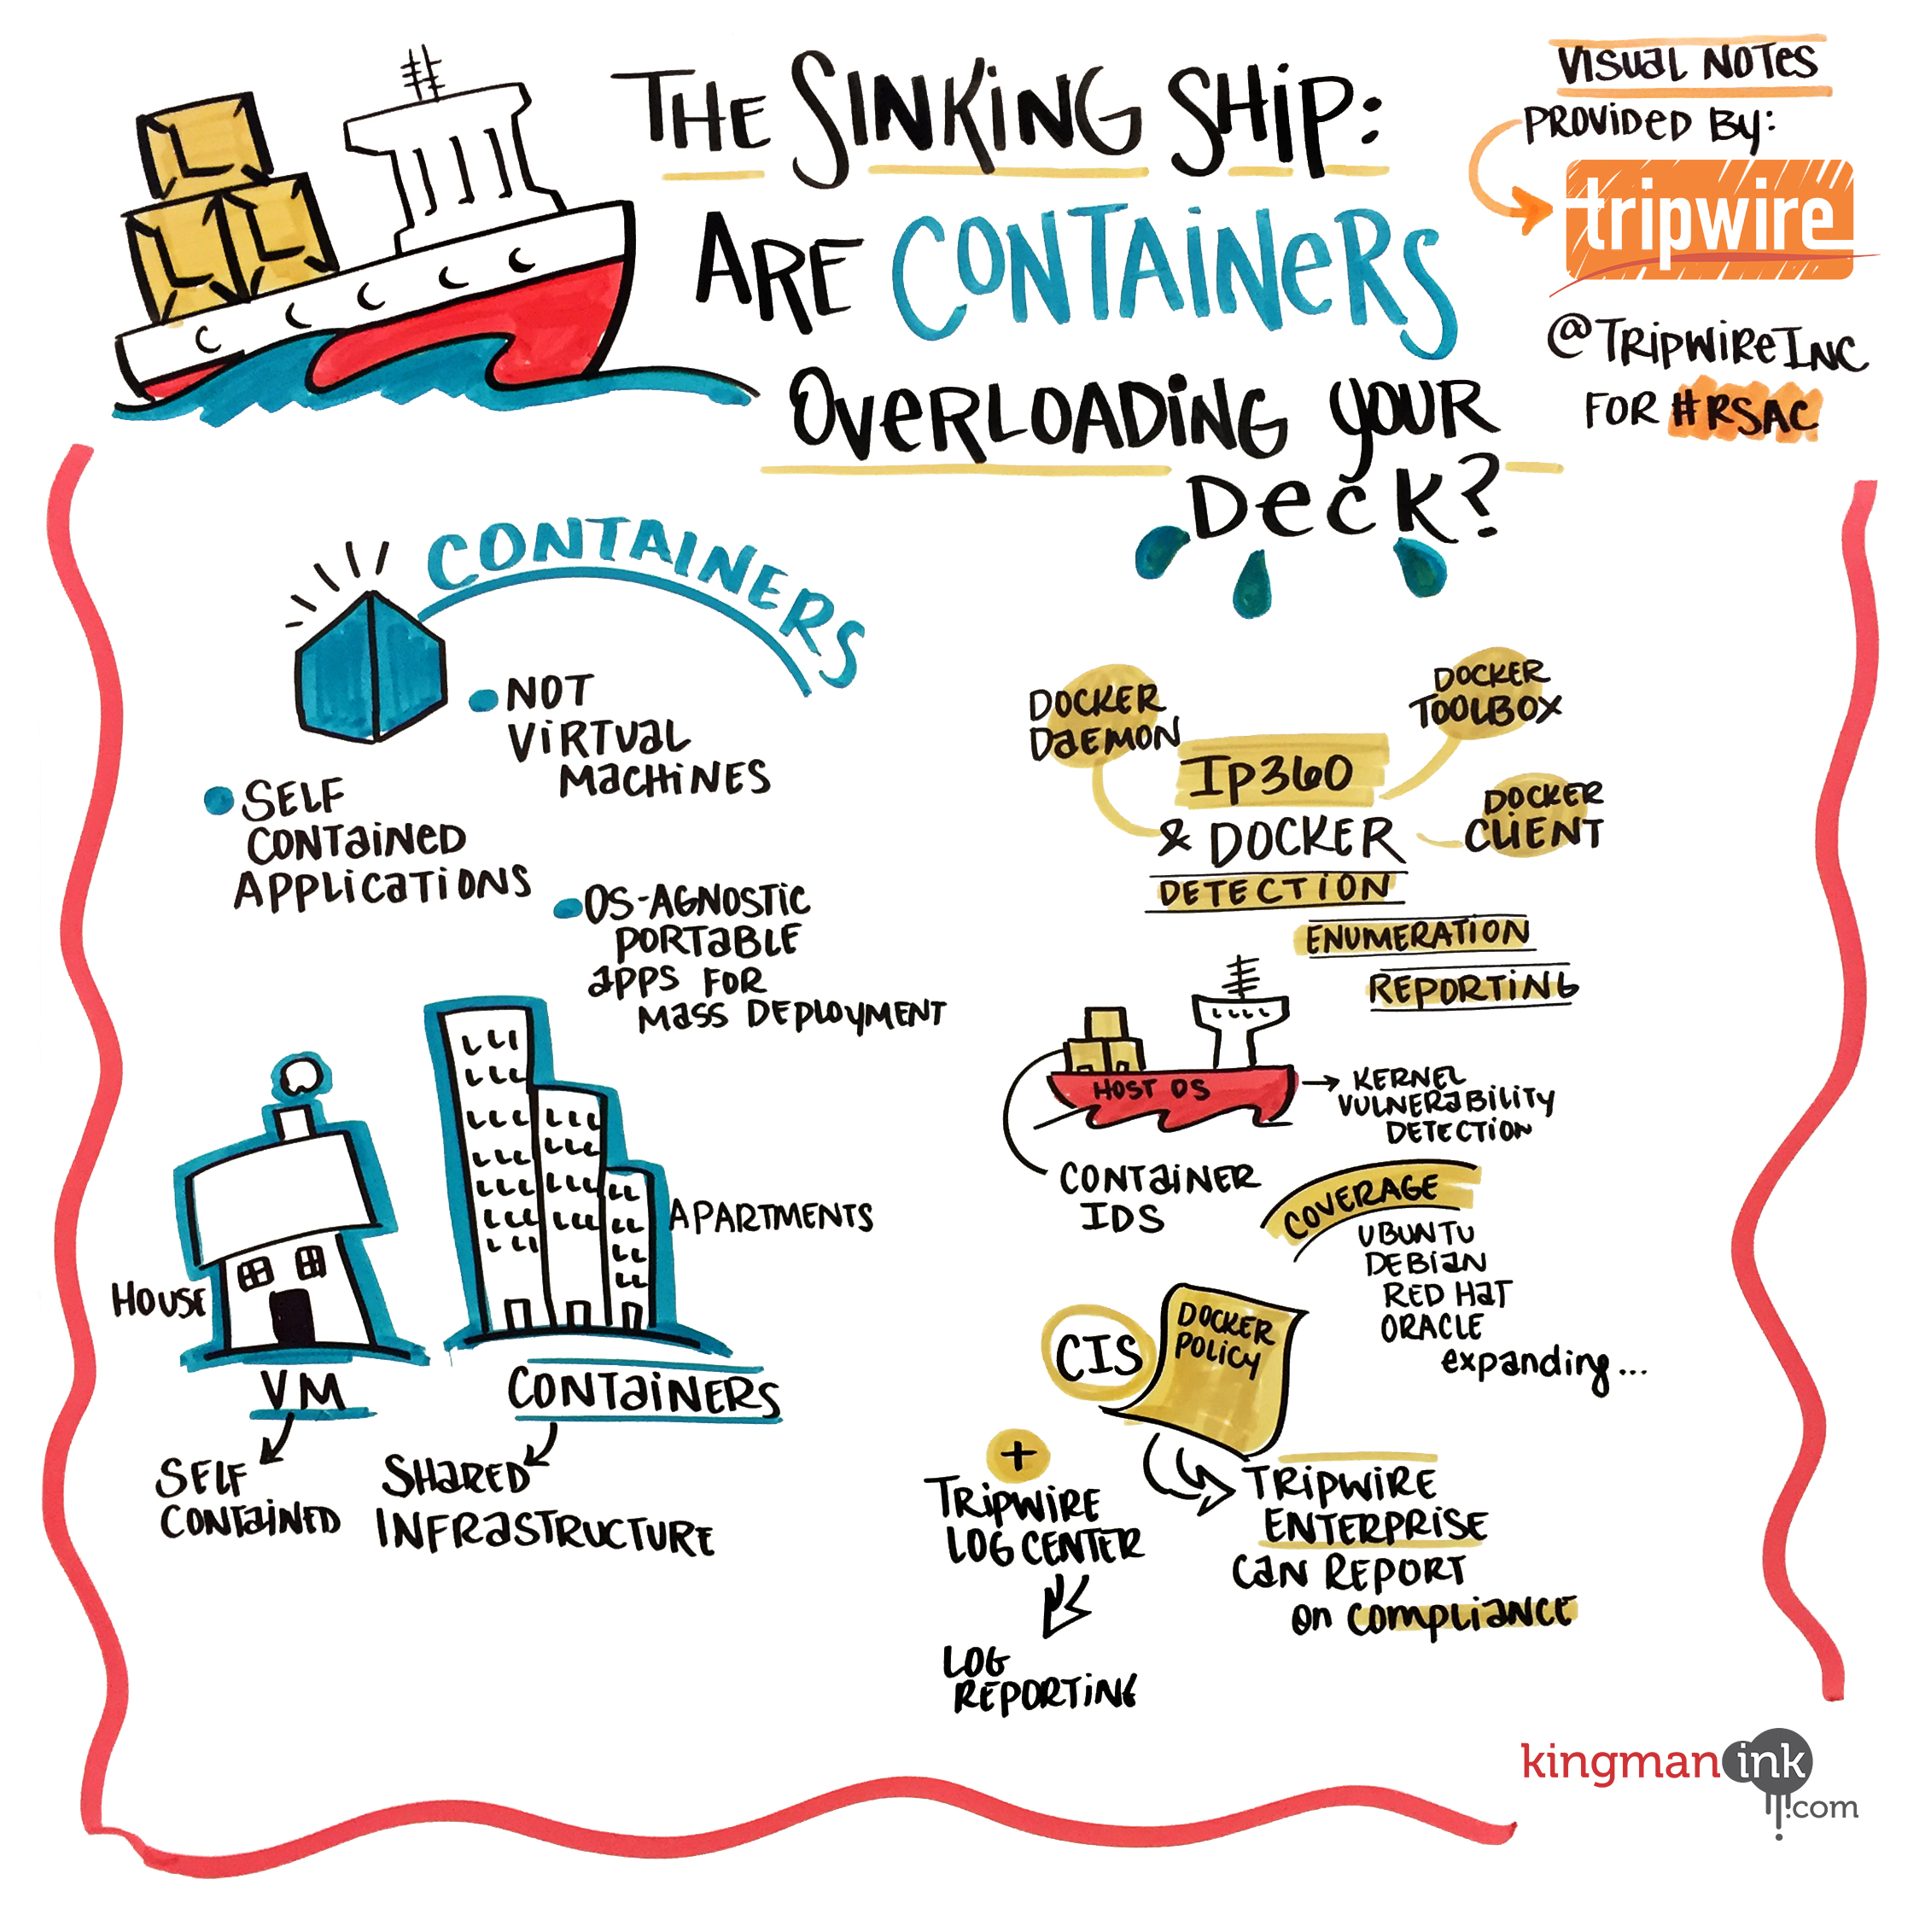 THE SINKING SHIP:
ARE CONTAINERS
OVERLOADING YOUR
DECK?
VISUAL NOTES
PROVIDED BY:
tripwire
@TRIPWIREINC
FOR #RSAC
CONTAINERS
NOT
VIRTUAL
MACHINES
SELF
CONTAINED
APPLICATIONS
OS-AGNOSTIC
PORTABLE
APPS FOR
MASS DEPLOYMENT
HOUSE
APARTMENTS
VM
CONTAINERS
SELF
CONTAINED
SHARED
INFRASTRUCTURE
DOCKER
DAEMON
DOCKER
TOOLBOX
IP360
& DOCKER
DOCKER
CLIENT
DETECTION
ENUMERATION
REPORTING
HOST OS
KERNEL
VULNERABILITY
DETECTION
CONTAINER
IDS
COVERAGE
UBUNTU
DEBIAN
RED HAT
ORACLE
expanding...
CIS
DOCKER
POLICY
TRIPWIRE
ENTERPRISE
CAN REPORT
on COMPLIANCE
+
TRIPWIRE
LOG CENTER
LOG
REPORTING
kingmanink
.com